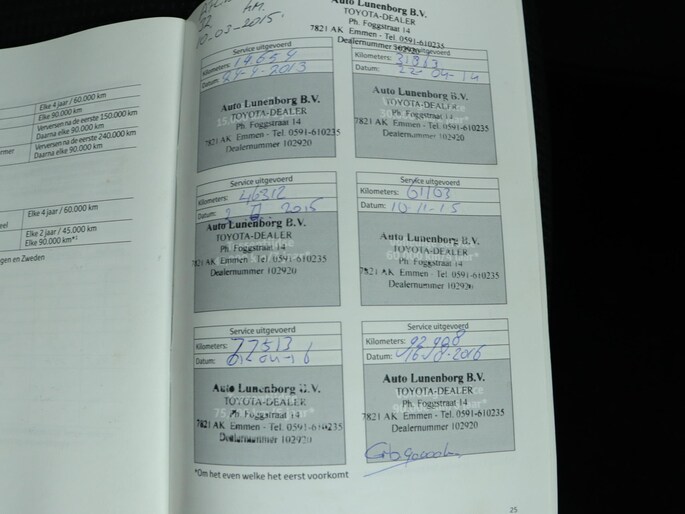 KM.
10-03-2015.
Auto Lunenborg B.V.
TOYOTA-DEALER
Ph. Foggstraat 14
7821 AK Emmen - Tel. 0591-610235
Dealernummer 102920
Elke 4 jaar / 60.000 km
Elke 90.000 km
Verversen na de eerste 150.000 km
Daarna elke 90.000 km
Verversen na de eerste 240.000 km
Daarna elke 90.000 km
Elke 4 jaar / 60.000 km
Elke 2 jaar / 45.000 km
Elke 90.000 km*¹
gen en Zweden
Service uitgevoerd
Kilometers: 14654
Datum:
Auto Lunenborg B.V.
TOYOTA-DEALER
Ph. Foggstraat 14
7821 AK Emmen - Tel. 0591-610235
Dealernummer 102920
Service uitgevoerd
Kilometers: 31863
Datum: 22-04-14
Auto Lunenborg B.V.
TOYOTA-DEALER
Ph. Foggstraat 14
7821 AK Emmen - Tel. 0591-610235
Dealernummer 102920
Service uitgevoerd
Kilometers: 46312
Datum: 2 II 2015
Auto Lunenborg B.V.
TOYOTA-DEALER
Ph. Foggstraat 14
7821 AK Emmen - Tel. 0591-610235
Dealernummer 102920
Service uitgevoerd
Kilometers: 61103
Datum: 10-11-15
Auto Lunenborg B.V.
TOYOTA-DEALER
Ph. Foggstraat 14
7821 AK Emmen - Tel. 0591-610235
Dealernummer 102920
Service uitgevoerd
Kilometers: 77513
Datum: 01-04-16
Auto Lunenborg B.V.
TOYOTA-DEALER
Ph. Foggstraat 14
7821 AK Emmen - Tel. 0591-610235
Dealernummer 102920
Service uitgevoerd
Kilometers: 92908
Datum: 16-8-2016
Auto Lunenborg B.V.
TOYOTA-DEALER
Ph. Foggstraat 14
7821 AK Emmen - Tel. 0591-610235
Dealernummer 102920
*Om het even welke het eerst voorkomt
25